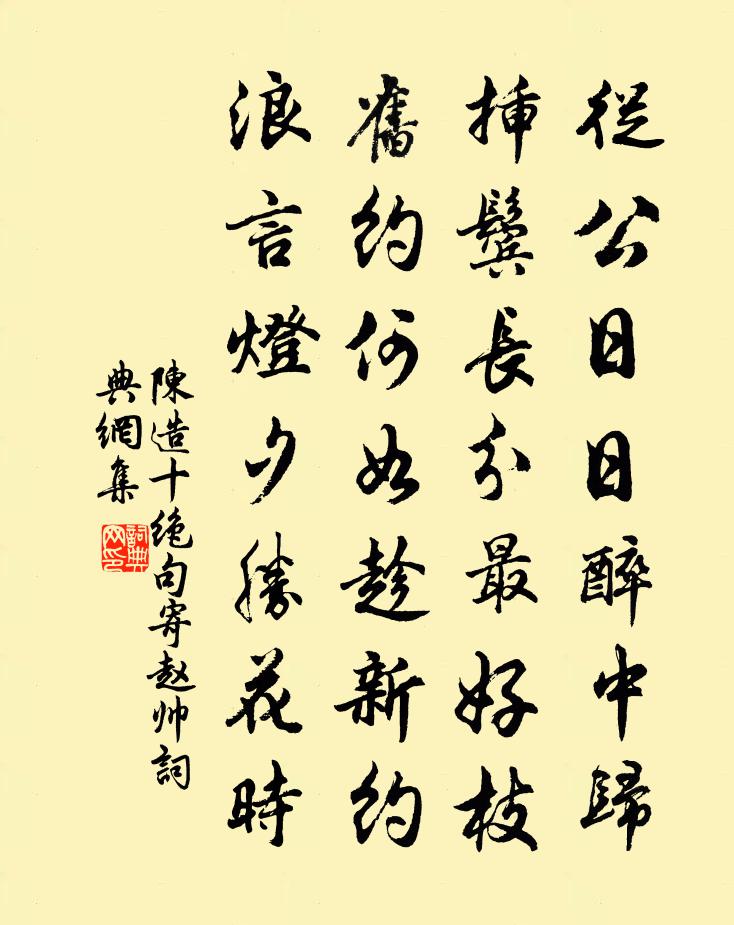 從公日日醉中歸
插鬢長分最好枝
舊約何如趁新約
浪言燈夕勝花時
陳造十绝句寄赵帅詞
典網集
詞典网印